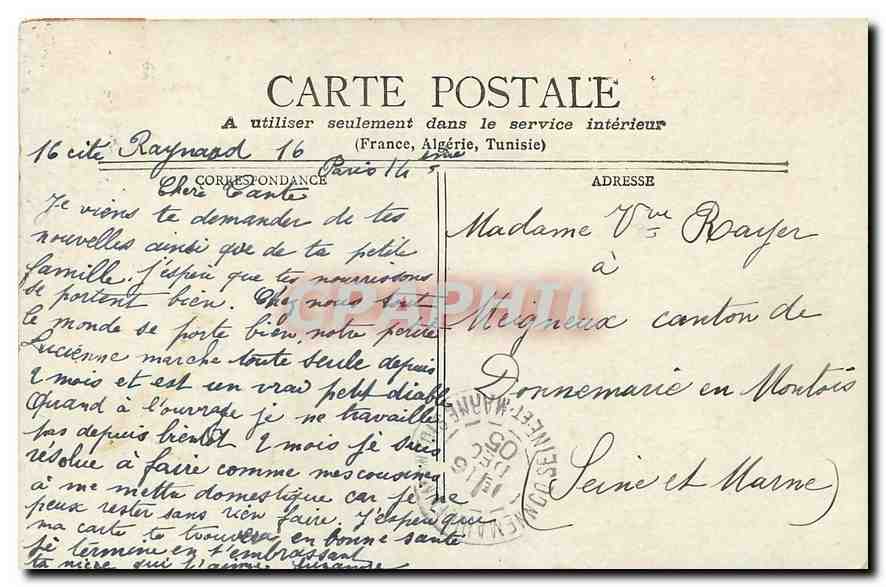 CARTE POSTALE
A utiliser seulement dans le service intérieur
(France, Algérie, Tunisie)
16 cité Raynaud 16
Paris 14 ème
CORRESPONDANCE
Chère Tante
Je viens te demander de tes
nouvelles ainsi que de ta petite
famille, j'espère que tes nourrissons
se portent bien. Chez nous tout
le monde se porte bien, notre petite
Lucienne marche toute seule depuis
2 mois et est un vrai petit diable
Quand à l'ouvrage je ne travaille
pas depuis bientôt 2 mois je suis
résolue à faire comme mes cousines
à me mettre domestique car je ne
peux rester sans rien faire. J'espère que
ma carte te trouvera en bonne santé
je termine en t'embrassant
ta nièce qui t'aime Suzanne
ADRESSE
Madame Vve Rayer
à
Meigneux canton de
Donnemarie en Montois
(Seine et Marne)
DEC
05
SEINE-ET-MARNE
CPAPHIL